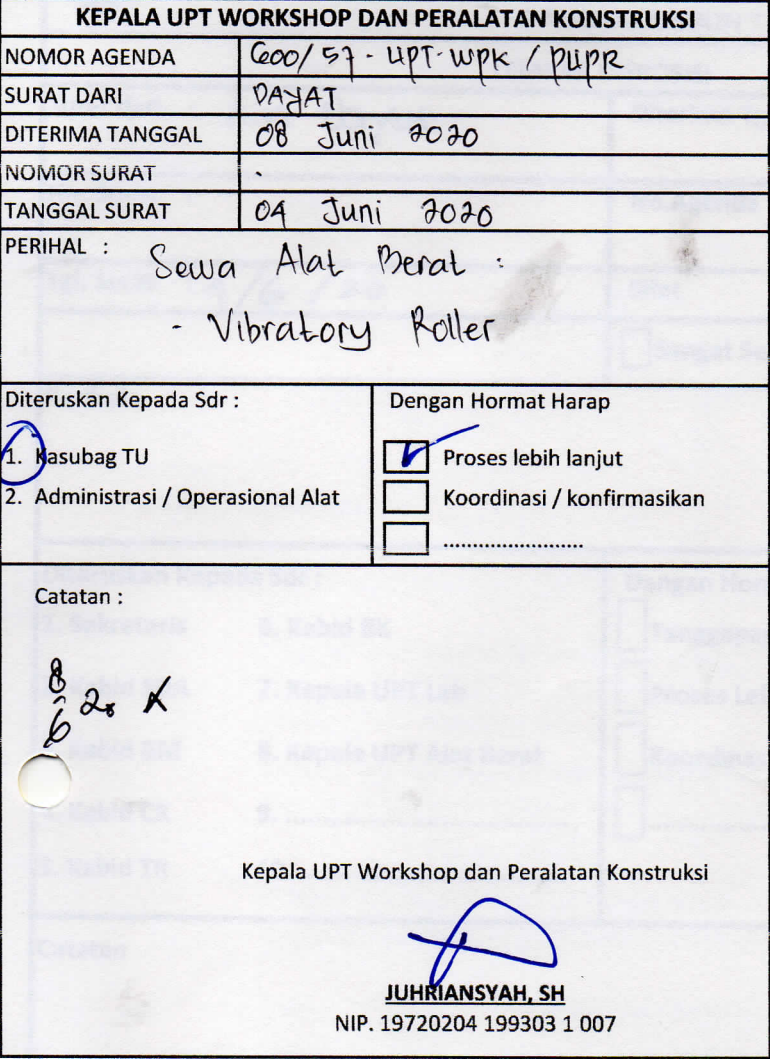 KEPALA UPT WORKSHOP DAN PERALATAN KONSTRUKSI
NOMOR AGENDA 600/57-UPT-WPK / PUPR
SURAT DARI DAYAT
DITERIMA TANGGAL 08 Juni 2020
NOMOR SURAT -
TANGGAL SURAT 04 Juni 2020
PERIHAL : Sewa Alat Berat :
- Vibratory Roller
Diteruskan Kepada Sdr : Dengan Hormat Harap
1. Kasubag TU Proses lebih lanjut
2. Administrasi / Operasional Alat Koordinasi / konfirmasikan
........................
Catatan :
8/6 20
Kepala UPT Workshop dan Peralatan Konstruksi
JUHRIANSYAH, SH
NIP. 19720204 199303 1 007